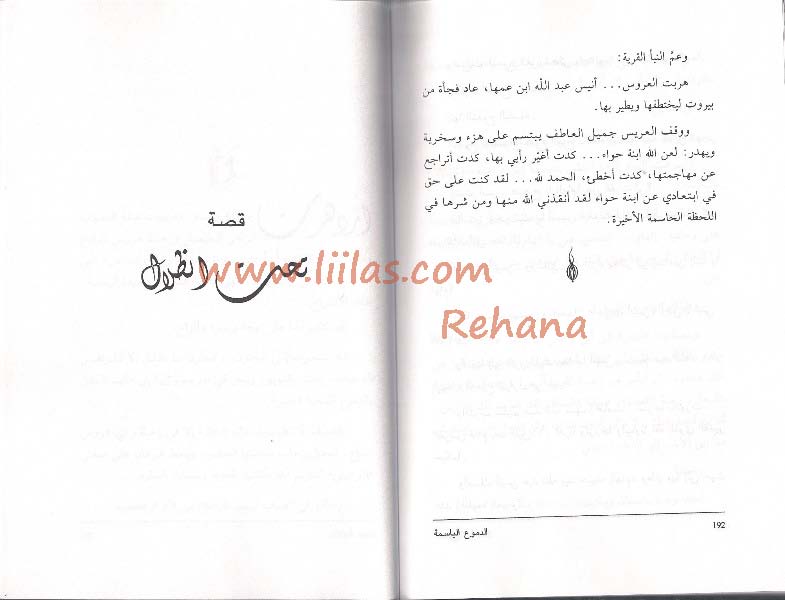 وعمّ النبأ القرية:
هربت العروس... أنيس عبد الله ابن عمها، عاد فجأة من
بيروت ليختطفها ويطير بها.
ووقف العريس جميل العاطف يبتسم على هزء وسخرية
ويهدر: لعن الله ابنة حواء... كدت أغيّر رأيي بها، كدت أتراجع
عن مهاجمتها، كدت أخطئ، الحمد لله... لقد كنت على حق
في ابتعادي عن ابنة حواء لقد أنقذني الله منها ومن شرها في
اللحظة الحاسمة الأخيرة.
192
الدموع الباسمة
قصة
تحت الظلال
www.liilas.com
Rehana